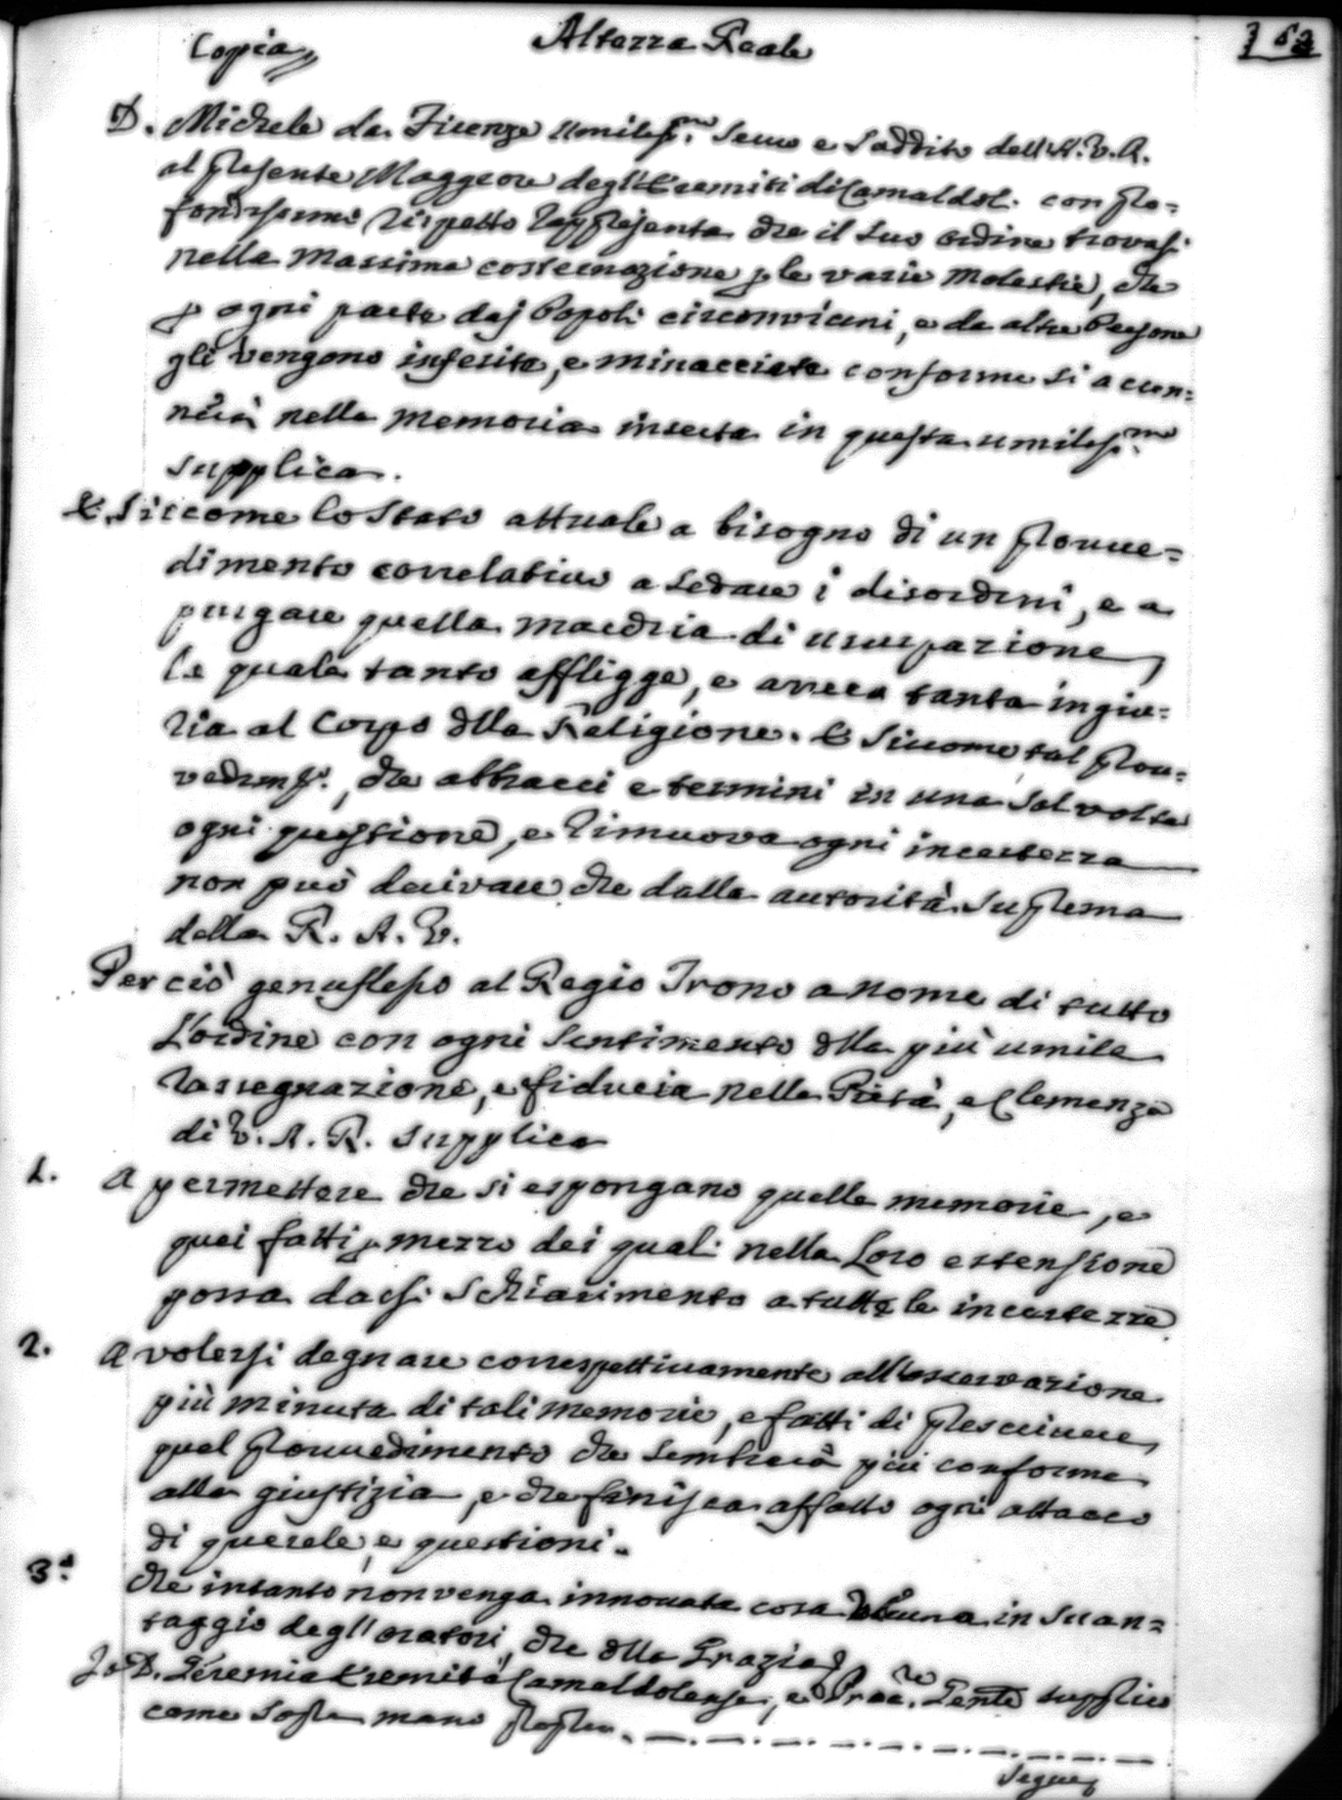 Copia
Altezza Reale
D. Michele da Firenze umiliss.mo Servo e Suddito dell'A.V.R.
al presente Maggiore degl'Eremiti di Camaldol. con pro=
fondissimo rispetto rappresenta che il suo ordine trovasi
nella massima costernazione p le varie molestie, che
p ogni parte daj Popoli circonvicini, e da altre Persone
gli vengono inferite, e minacciate conforme si accen=
nerà nella memoria inserta in questa umiliss.ma
supplica.
E siccome lo Stato attuale a bisogno di un provve=
dimento correlativo a sedare i disordini, e a
purgare quella macchia di usurpazione,
la quale tanto affligge, e arreca tanta ingiu=
ria al Corpo dlla Religione. E siccome tal prov=
vedim.to, che abbracci e termini in una sol volta
ogni questione, e rimuova ogni incertezza
non può derivare che dalla autorità suprema
della R. A. V.
Perciò genuflesso al Regio Trono a nome di tutto
L'ordine con ogni sentimento dlla più umile
rassegnazione, e fiducia nella Pietà, e Clemenza
di V. A. R. supplica
1. A permettere che si espongano quelle memorie, e
quei fatti p mezzo dei quali nella Loro estensione
possa darsi schiarimento a tutte le incertezze
2. A volersi degnare correspettivamente all'osservazione
più minuta di tali memorie, e fatti di prescrivere
quel provvedimento che sembrerà più conforme
alla giustizia, e che finisca affatto ogni attacco
di querele, e questioni.
3.a che intanto non venga innovata cosa alcuna in svan=
taggio degl'oratori, che dlla Grazia
Io D. Geremia Eremita Camaldolense, e Proc.re Genle supplico
come sopra mano propria
Segue